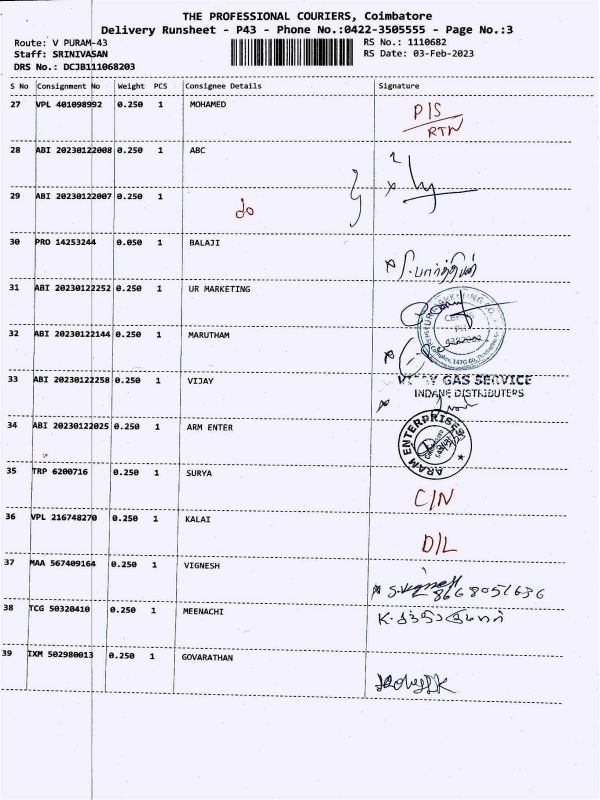 THE PROFESSIONAL COURIERS, Coimbatore
Delivery Runsheet - P43 - Phone No.:0422-3505555 - Page No.:3
Route: V PURAM-43 RS No.: 1110682
Staff: SRINIVASAN RS Date: 03-Feb-2023
DRS No.: DCJB111068203
S No Consignment No Weight PCS Consignee Details Signature
27 VPL 401098992 0.250 1 MOHAMED P/S
RTN
28 ABI 20230122008 0.250 1 ABC
29 ABI 20230122007 0.250 1 do
30 PRO 14253244 0.050 1 BALAJI
31 ABI 20230122252 0.250 1 UR MARKETING
32 ABI 20230122144 0.250 1 MARUTHAM
33 ABI 20230122258 0.250 1 VIJAY VIJAY GAS SERVICE
INDANE DISTRIBUTERS
34 ABI 20230122025 0.250 1 ARM ENTER ARAM ENTERPRISES
35 TRP 6200716 0.250 1 SURYA C/N
36 VPL 216748270 0.250 1 KALAI D/L
37 MAA 567409164 0.250 1 VIGNESH S.Vignesh 8668051636
38 TCG 50320410 0.250 1 MEENACHI
39 IXM 502980013 0.250 1 GOVARATHAN